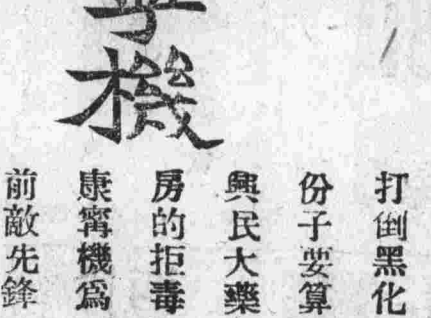 機
打倒黑化
份子要算
興民大藥
房的拒毒
康寗機爲
前敵先鋒